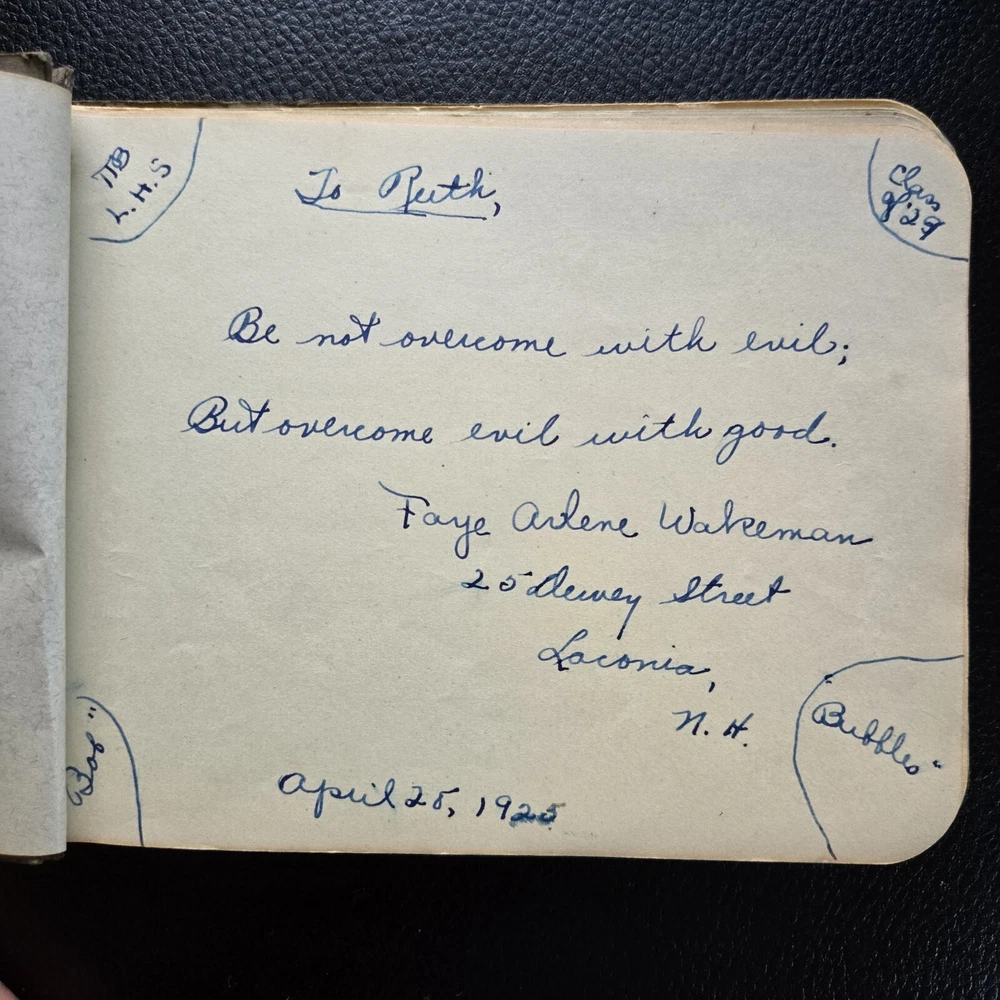 ΠB
L.H.S
To Ruth,
Class
of '29
Be not overcome with evil;
But overcome evil with good.
Faye Arlene Wakeman
25 Dewey Street
Laconia,
N. H.
April 25, 1925
"Bubbles"